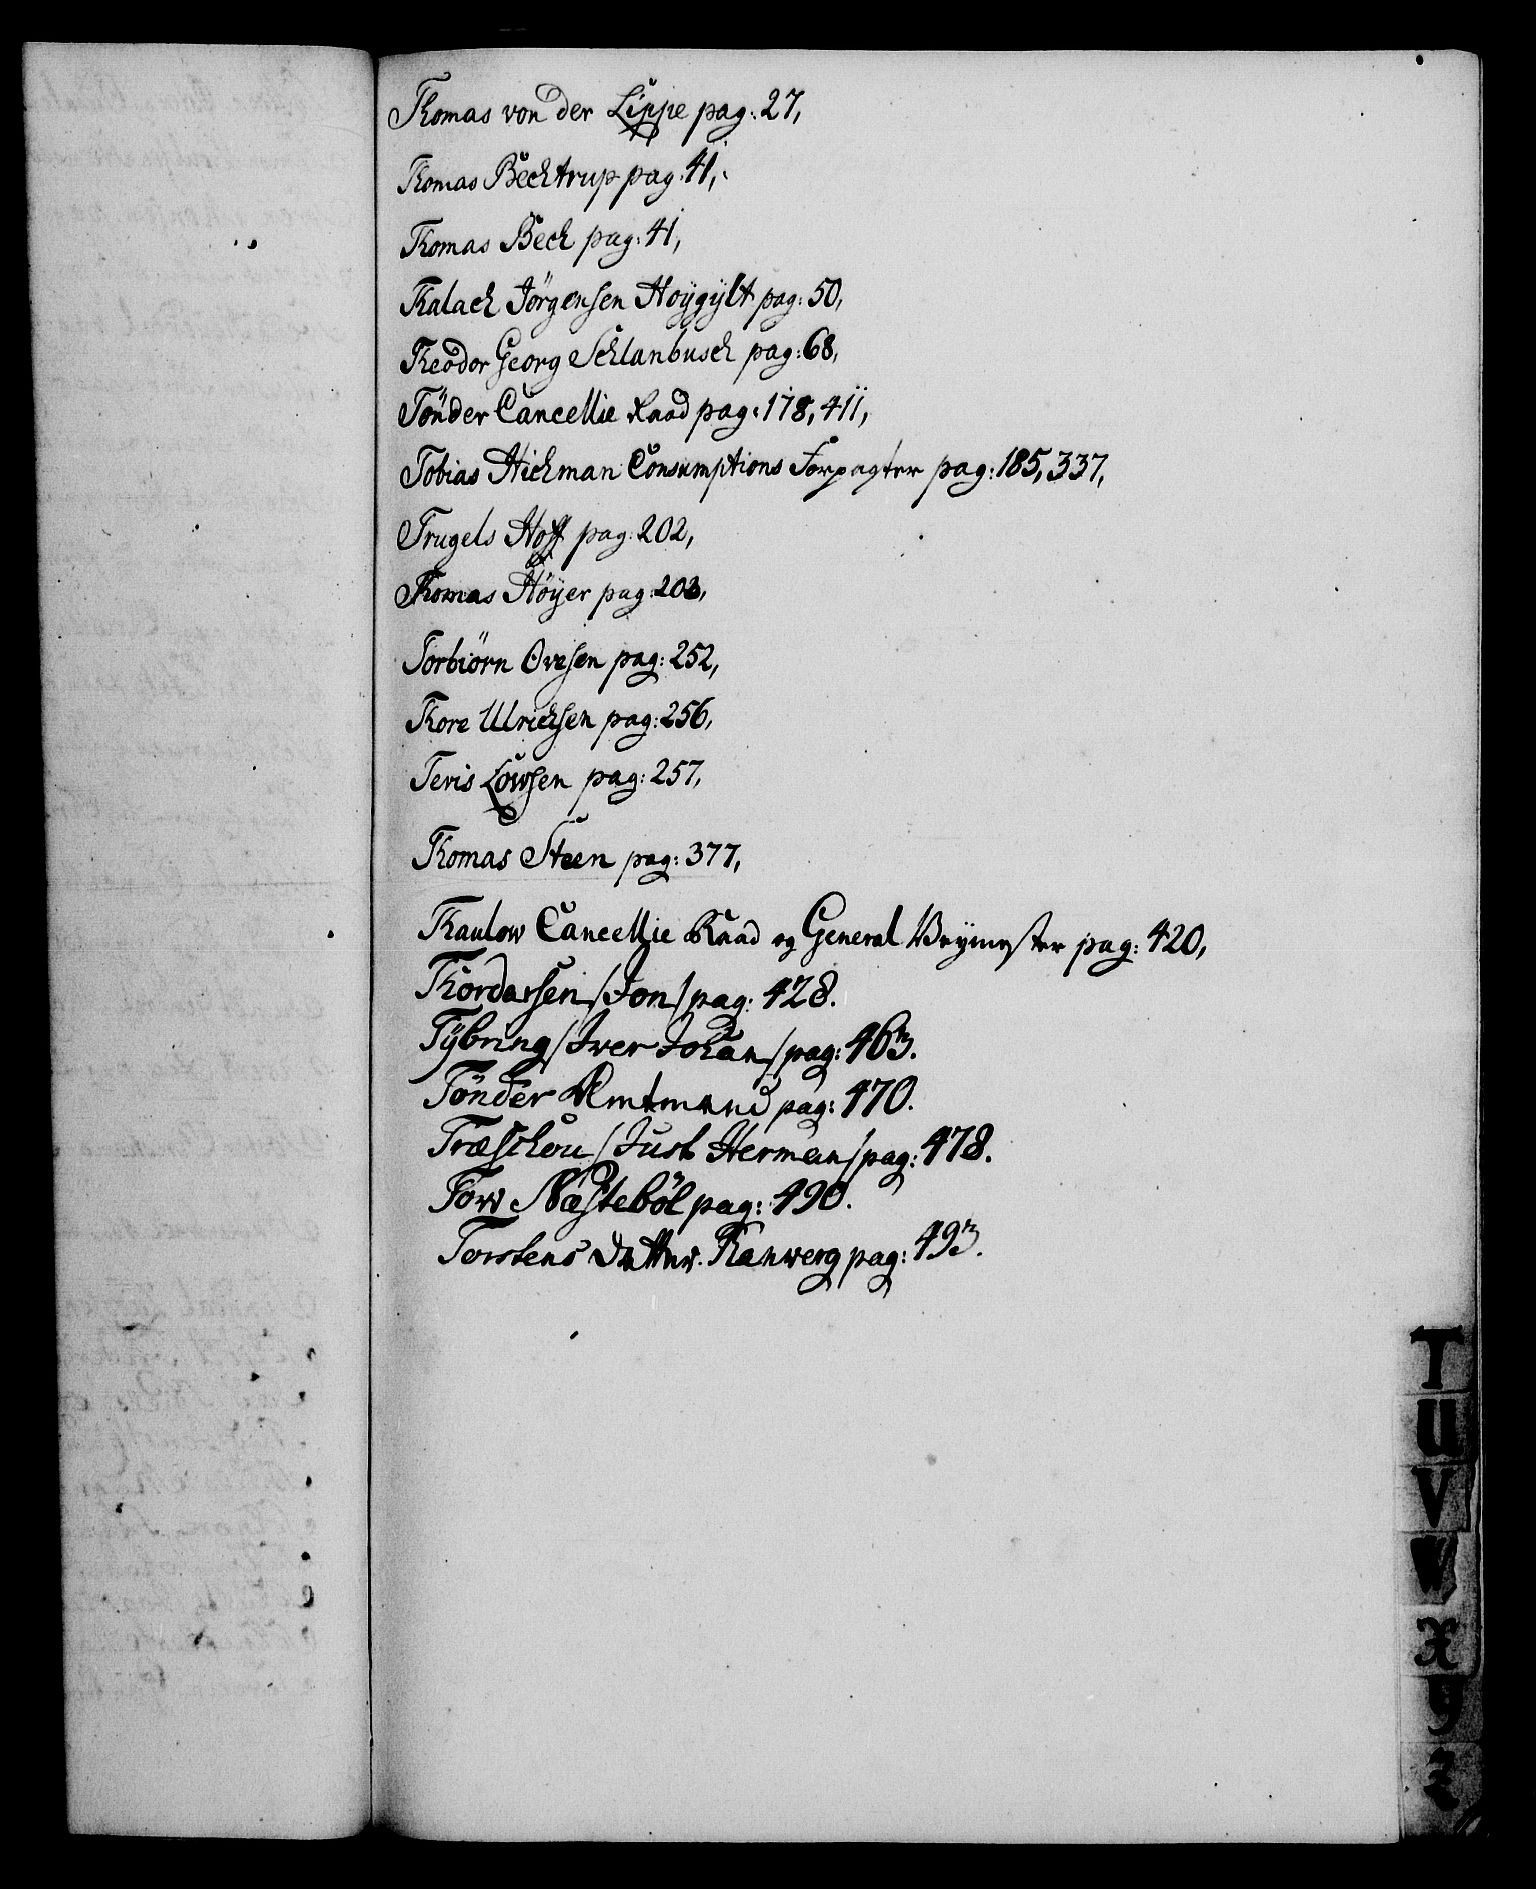 Thomas von der Lippe pag: 27,
Thomas Bechtrup pag: 41,
Thomas Bech pag: 41,
Thalach Jörgensen Hoÿgÿlt pag: 50,
Theodor Georg Schlanbusch pag: 68,
Tönder Cancellie Raad pag: 178, 411,
Tobias Hickman Consumptions Forpagter pag: 185, 337,
Trugels Hoff pag: 202,
Thomas Höÿer pag: 203,
Torbiörn Ovesen pag: 252,
Thore Ulrichsen pag: 256,
Teris Lowsen pag: 257,
Thomas Steen pag: 377,
Thaulow Cancellie Raad og General Veÿmester pag: 420,
Thordarsen /Jon/ pag: 428.
Tÿbring /Iver Johan/ pag: 463.
Tönder Amtmand pag: 470.
Træschou /Just Herman/ pag: 478.
Tow Næsteböl pag: 490.
Torstens Datter. Ranwerg pag: 493.
T
U
V
W
X
Y
Z